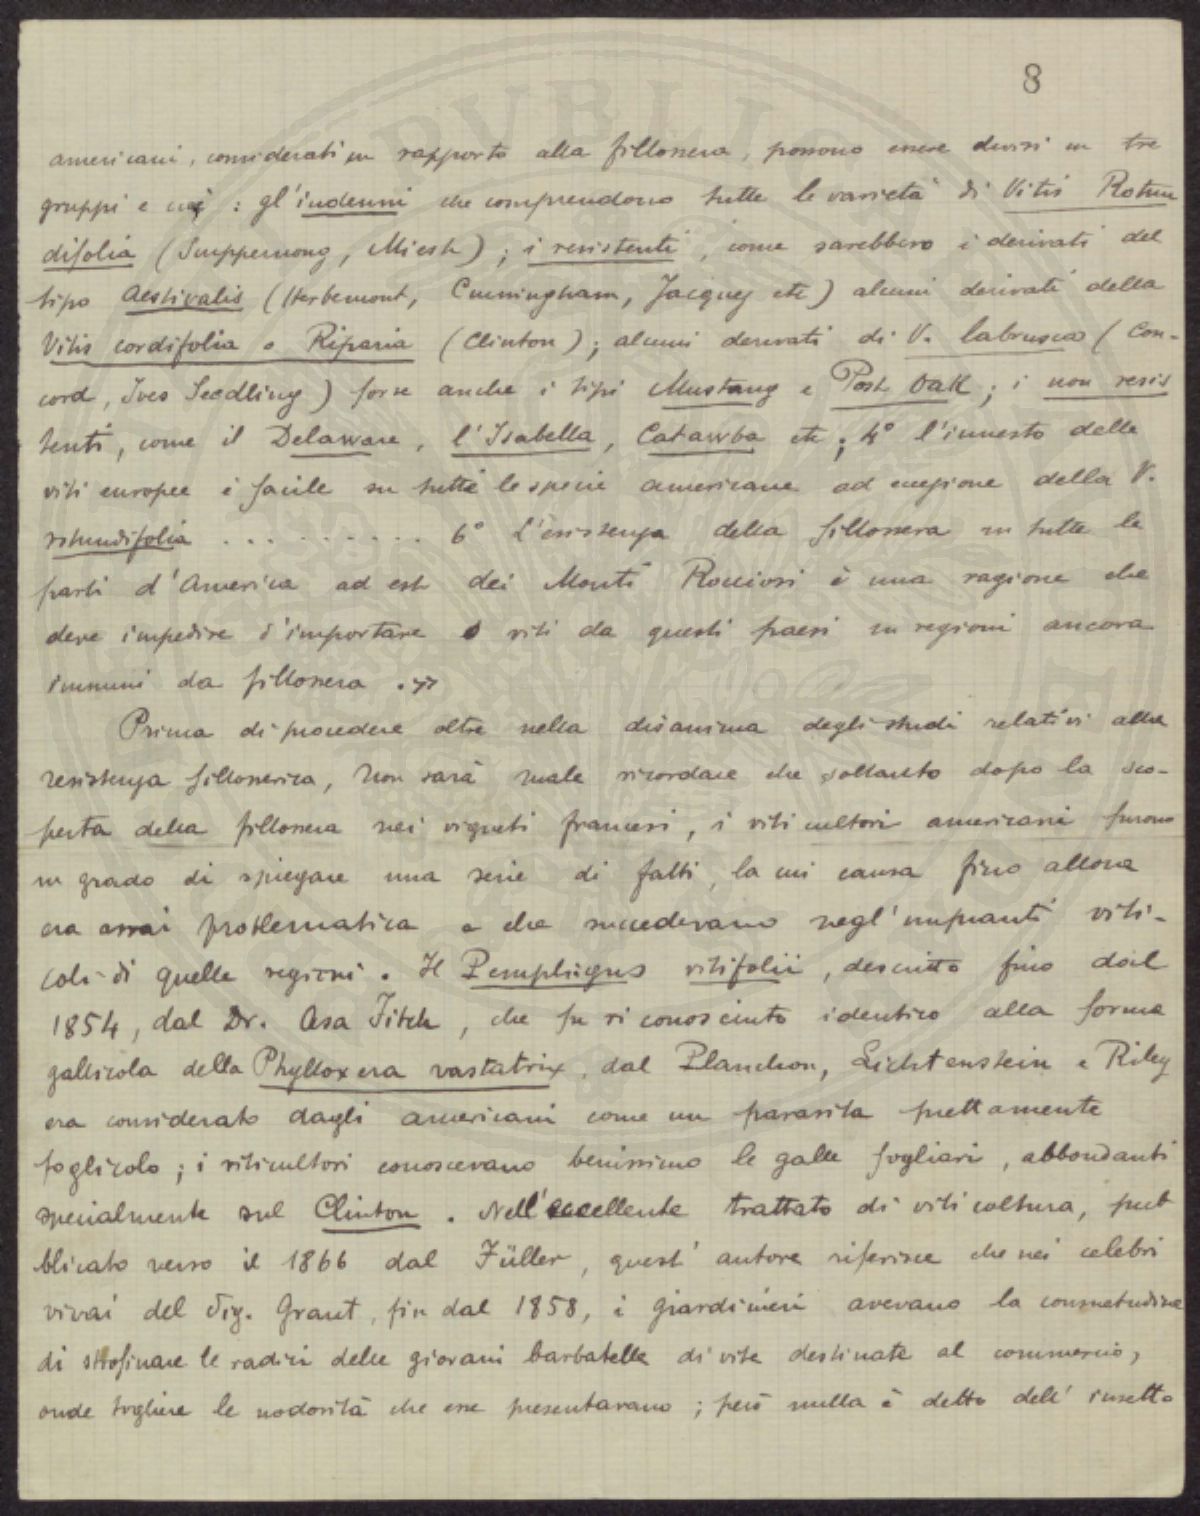 8
americani, considerati in rapporto alla fillossera, possono essere divisi in tre
gruppi e cioè : gl'indenni che comprendono tutte le varietà di Vitis Rotun
difolia (Scuppernong, Miesh) ; i resistenti, come sarebbero i derivati del
tipo Aestivalis (Herbemont, Cunningham, Jacquez etc) alcuni derivati della
Vitis cordifolia o Riparia (Clinton) ; alcuni derivati di V. labrusca (Con-
cord, Ives Seedling) forse anche i tipi Mustang e Post Oak ; i non resis
tenti, come il Delaware, l'Isabella, Catawba etc ; 4° l'innesto delle
viti europee è facile su tutte le specie americane ad eccezione della V.
rotundifolia . . . . . . . . . 6° L'esistenza della fillossera in tutte le
parti d'America ad est dei Monti Rocciosi è una ragione che
deve impedire d'importare viti da questi paesi in regioni ancora
immuni da fillossera .»
Prima di procedere oltre nella disamina degli studi relativi alla
resistenza fillosserica, non sarà male ricordare che soltanto dopo la sco-
perta della fillossera nei vigneti francesi, i viticultori americani furono
in grado di spiegare una serie di fatti, la cui causa fino allora
era assai problematica e che succedevano negl'impianti viti-
coli di quelle regioni. Il Pemphigus vitifolii, descritto fino dal
1854, dal Dr. Asa Fitch, che fu riconosciuto identico alla forma
gallicola della Phylloxera vastatrix, dal Planchon, Lichtenstein e Riley
era considerato dagli americani come un parassita prettamente
foglicolo ; i viticultori conoscevano benissimo le galle fogliari, abbondanti
specialmente sul Clinton. Nell'eccellente trattato di viticoltura, pub
blicato verso il 1866 dal Füller, quest'autore riferisce che nei celebri
vivai del Sig. Grant, fin dal 1858, i giardinieri avevano la consuetudine
di strofinare le radici delle giovani barbatelle di vite destinate al commercio,
onde togliere le nodosità che esse presentavano ; però nulla è detto dell'insetto